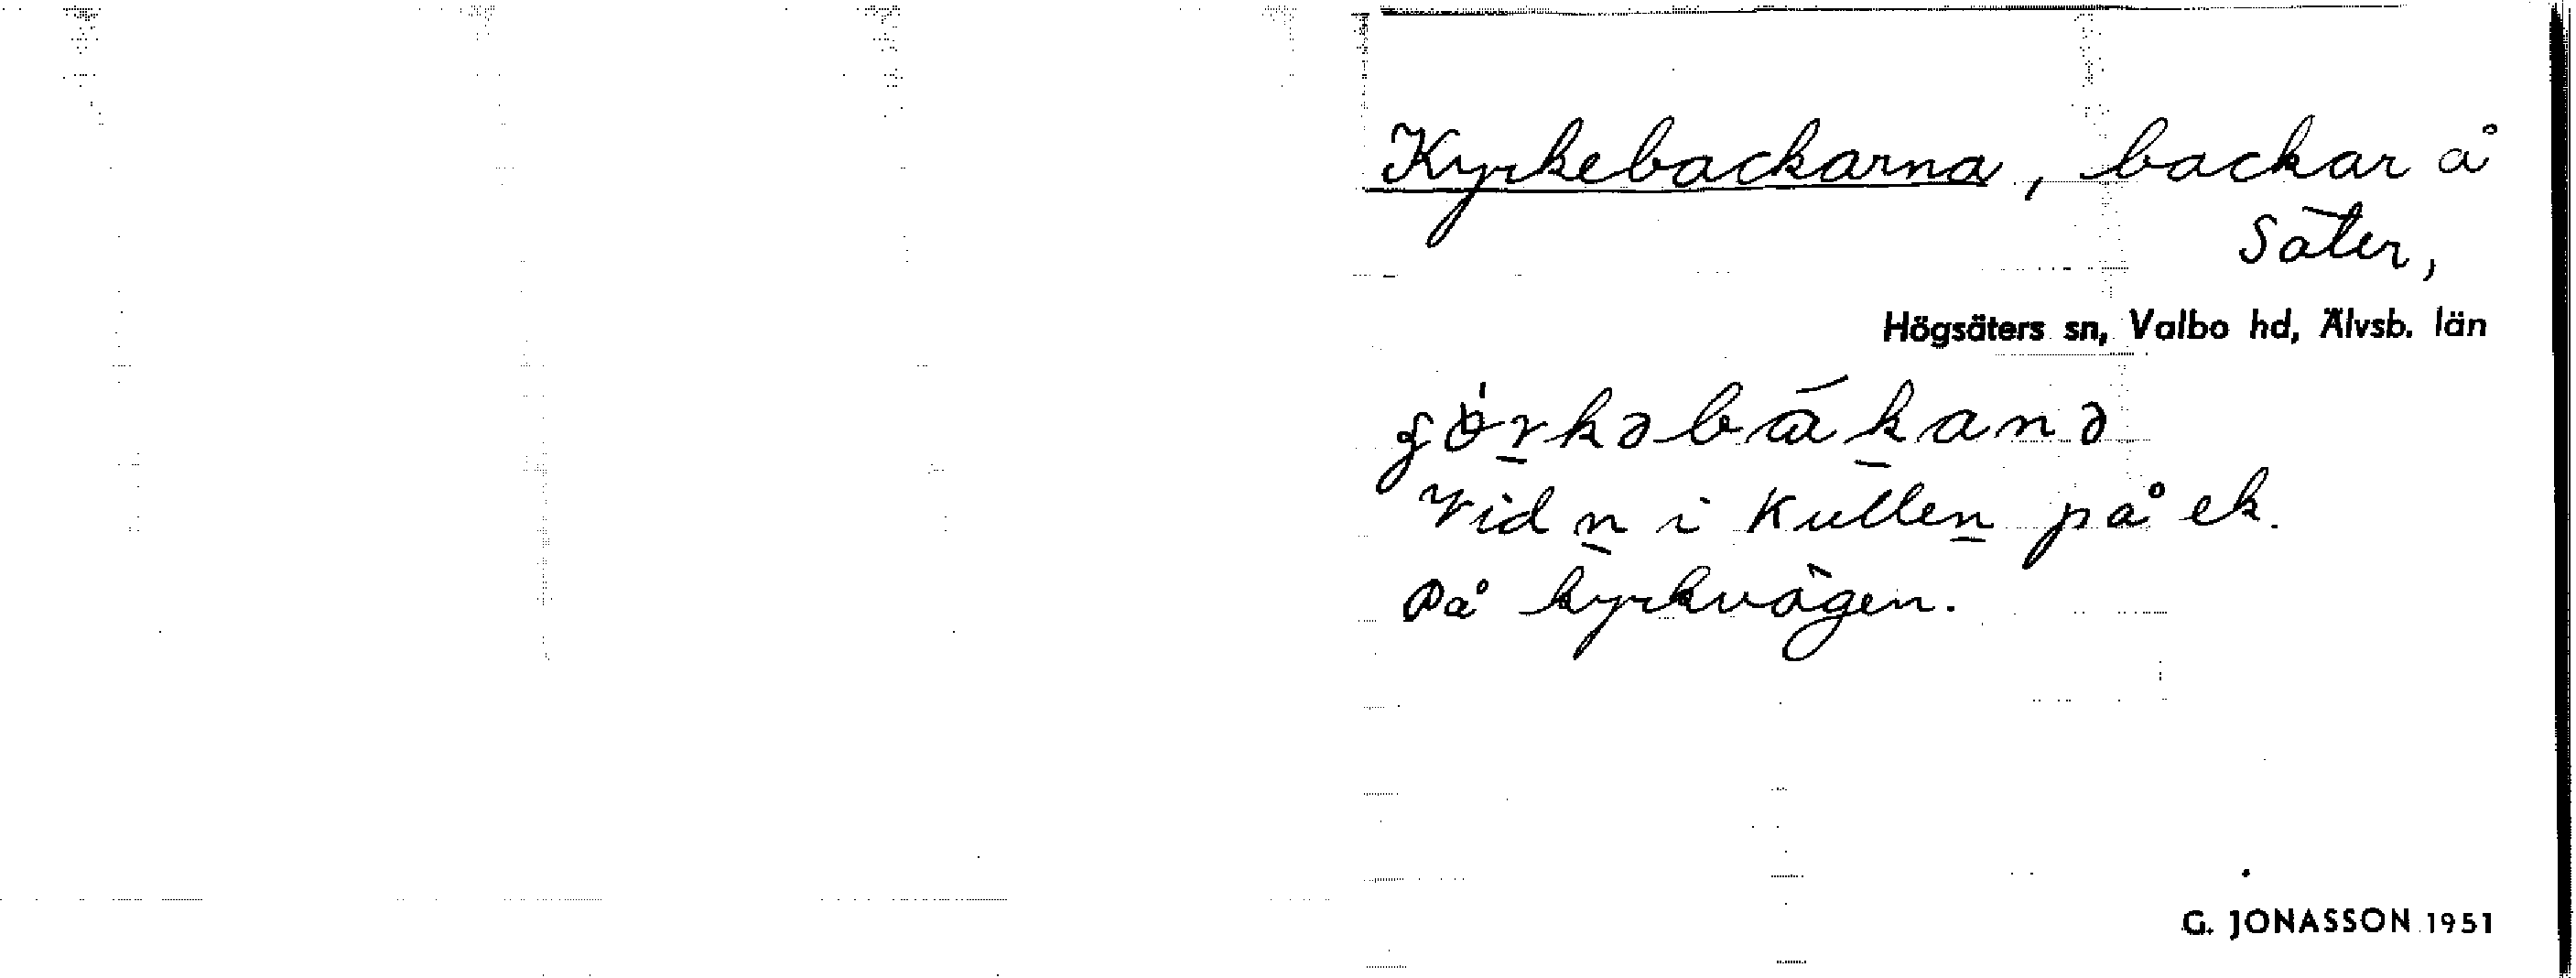 Kyrkebackarna, backar å
Säter,
Högsäters sn, Valbo hd, Älvsb. län
Vid n i Kullen på ek.
På kyrkvägen.
G. JONASSON 1951